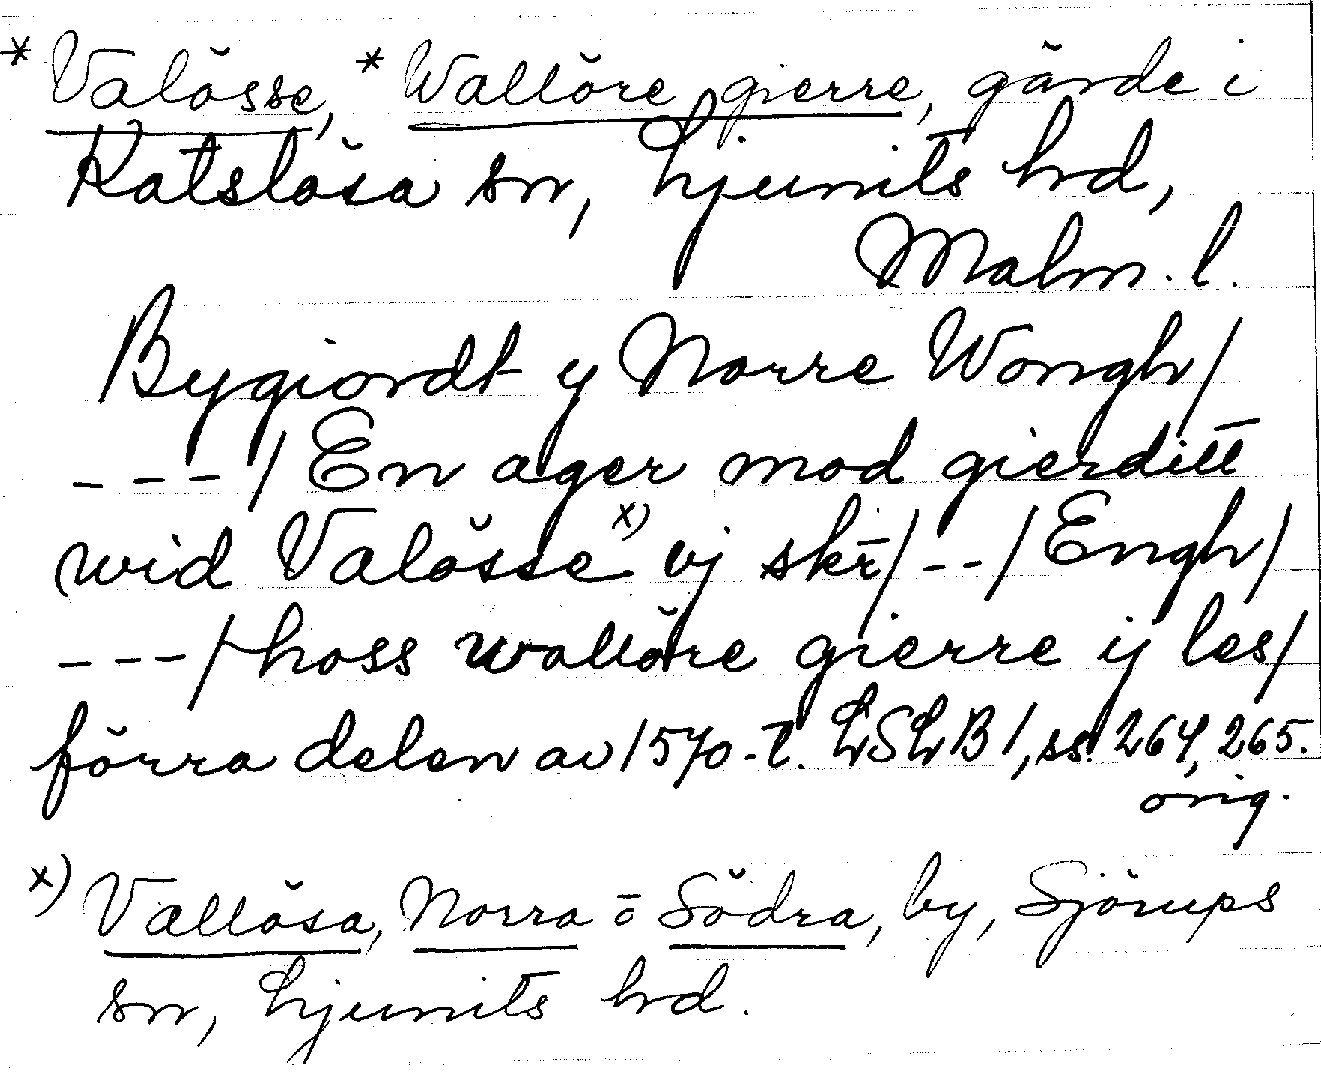 * Valösse, * Wallöre gierre, gärde i
Katslösa sn, Ljunits hd,
Malm. l.
Bygiordt y Norre Wongh/
---/ En ager mod gierditt
wid Valösse x) vj skr̄/--/Engh/
---/hoss wallöre gierre ij les/
förra delen av 1570-t. LSLB 1, ss. 264, 265.
orig.
x) Vallösa, Norra o Södra, by, Sjörups
sn, Ljunits hd.